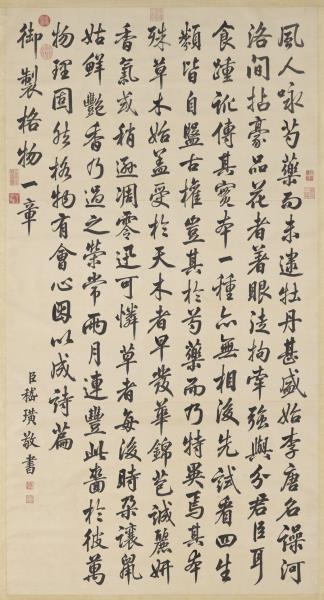 風人咏芍藥而未逮牡丹甚盛始李唐名譟河
洛間拈豪品花者著眼法拘牽強與分君臣耳
食踵訛傳其實本一種亦無相後先試看四生
類皆自盟古權豈其於芍藥而乃特異焉其本
殊草木始盖受於天木者早發華錦苞誠麗妍
香氣或稍遜凋零迅可憐草者每後時朶讓鼠
姑鮮艷香乃過之榮常兩月連豐此嗇於彼萬
物理固然格物有會心因以成詩篇
御製格物一章
臣嵇璜敬書